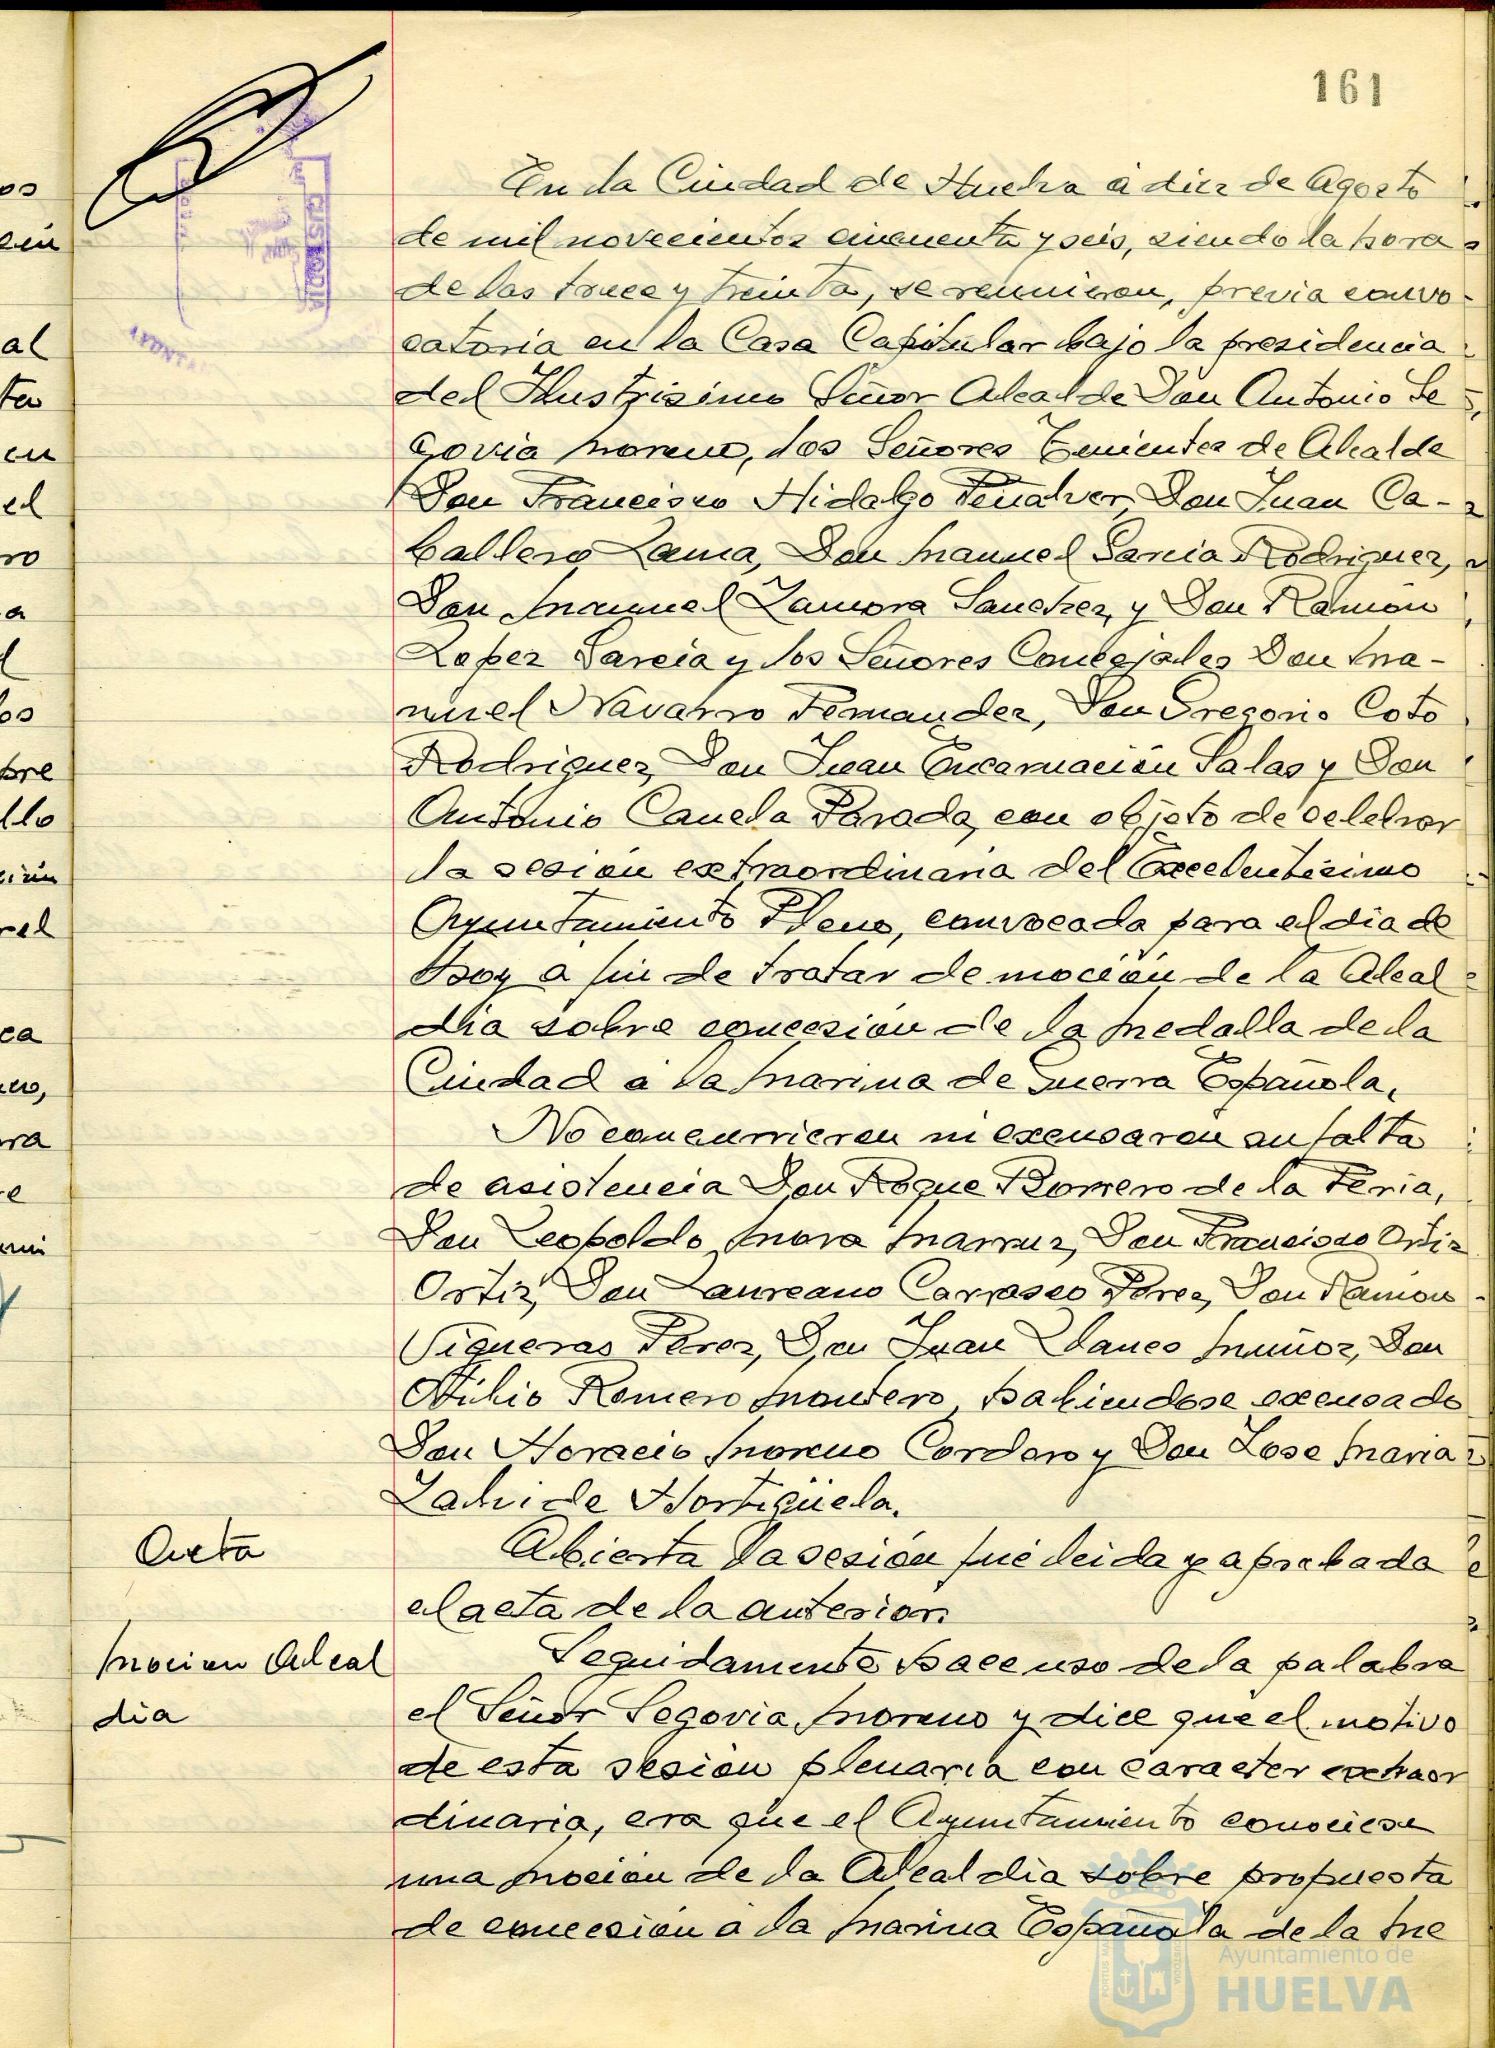 161
En la Ciudad de Huelva a diez de Agosto
de mil novecientos cincuenta y seis, siendo la hora
de las trece y treinta, se reunieron, previa convo-
catoria en la Casa Capitular bajo la presidencia
del Ilustrisimo Señor Alcalde Don Antonio Se
govia Moreno, los Señores Tenientes de Alcalde
Don Francisco Hidalgo Peñalver, Don Juan Ca-
ballero Lama, Don Manuel Garcia Rodriguez,
Don Manuel Zamora Sanchez, y Don Ramón
Lopez Garcia y los Señores Concejales Don Ma-
nuel Navarro Fernandez, Don Gregorio Coto
Rodriguez, Don Juan Encarnación Salas y Don
Antonio Canela Parada, con objeto de celebrar
la sesión extraordinaria del Excelentísimo
Ayuntamiento Pleno, convocada para el dia de
hoy a fin de tratar de moción de la Alcal
dia sobre concesión de la Medalla de la
Ciudad a la Marina de Guerra Española.
No concurrieron ni excusaron su falta
de asistencia Don Roque Borrero de la Feria,
Don Leopoldo Mora Marruz, Don Francisco Ortiz
Ortiz, Don Laureano Carrasco Perez, Don Ramón
Sigueras Perez, Don Juan Llanes Muñoz, Don
Atilio Romero Montero, habiendose excusado
Don Horacio Moreno Cordero y Don Jose Maria
Zalvide Hortigüela.
Acta
Abierta la sesión fué leida y aprobada
el acta de la anterior.
Mocion Alcal
dia
Seguidamente hace uso de la palabra
el Señor Segovia Moreno y dice que el motivo
de esta sesión plenaria con caracter extraor
dinaria, era que el Ayuntamiento conociese
una moción de la Alcaldia sobre propuesta
de concesión a la Marina Española de la Me
Ayuntamiento de
HUELVA